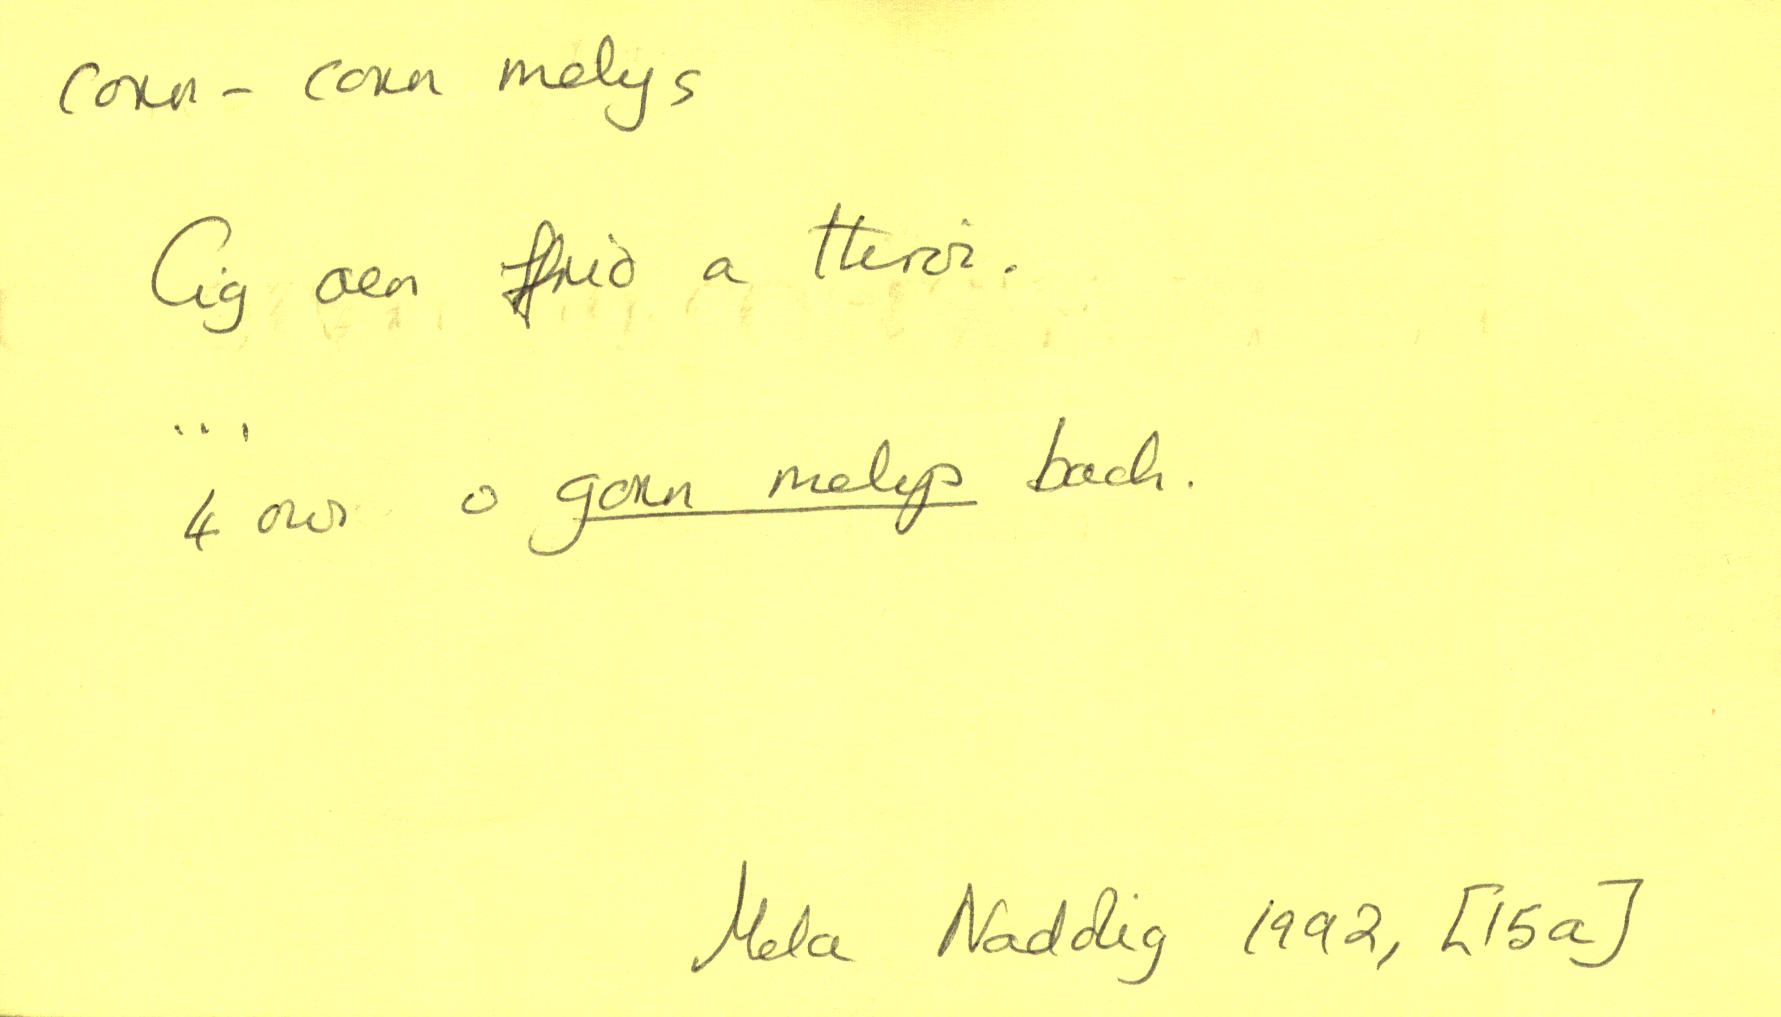 corn - corn melys
Cig oen ffrio a throi.
...
4 owns o gorn melys bach.
Nadolig 1992, [15a]